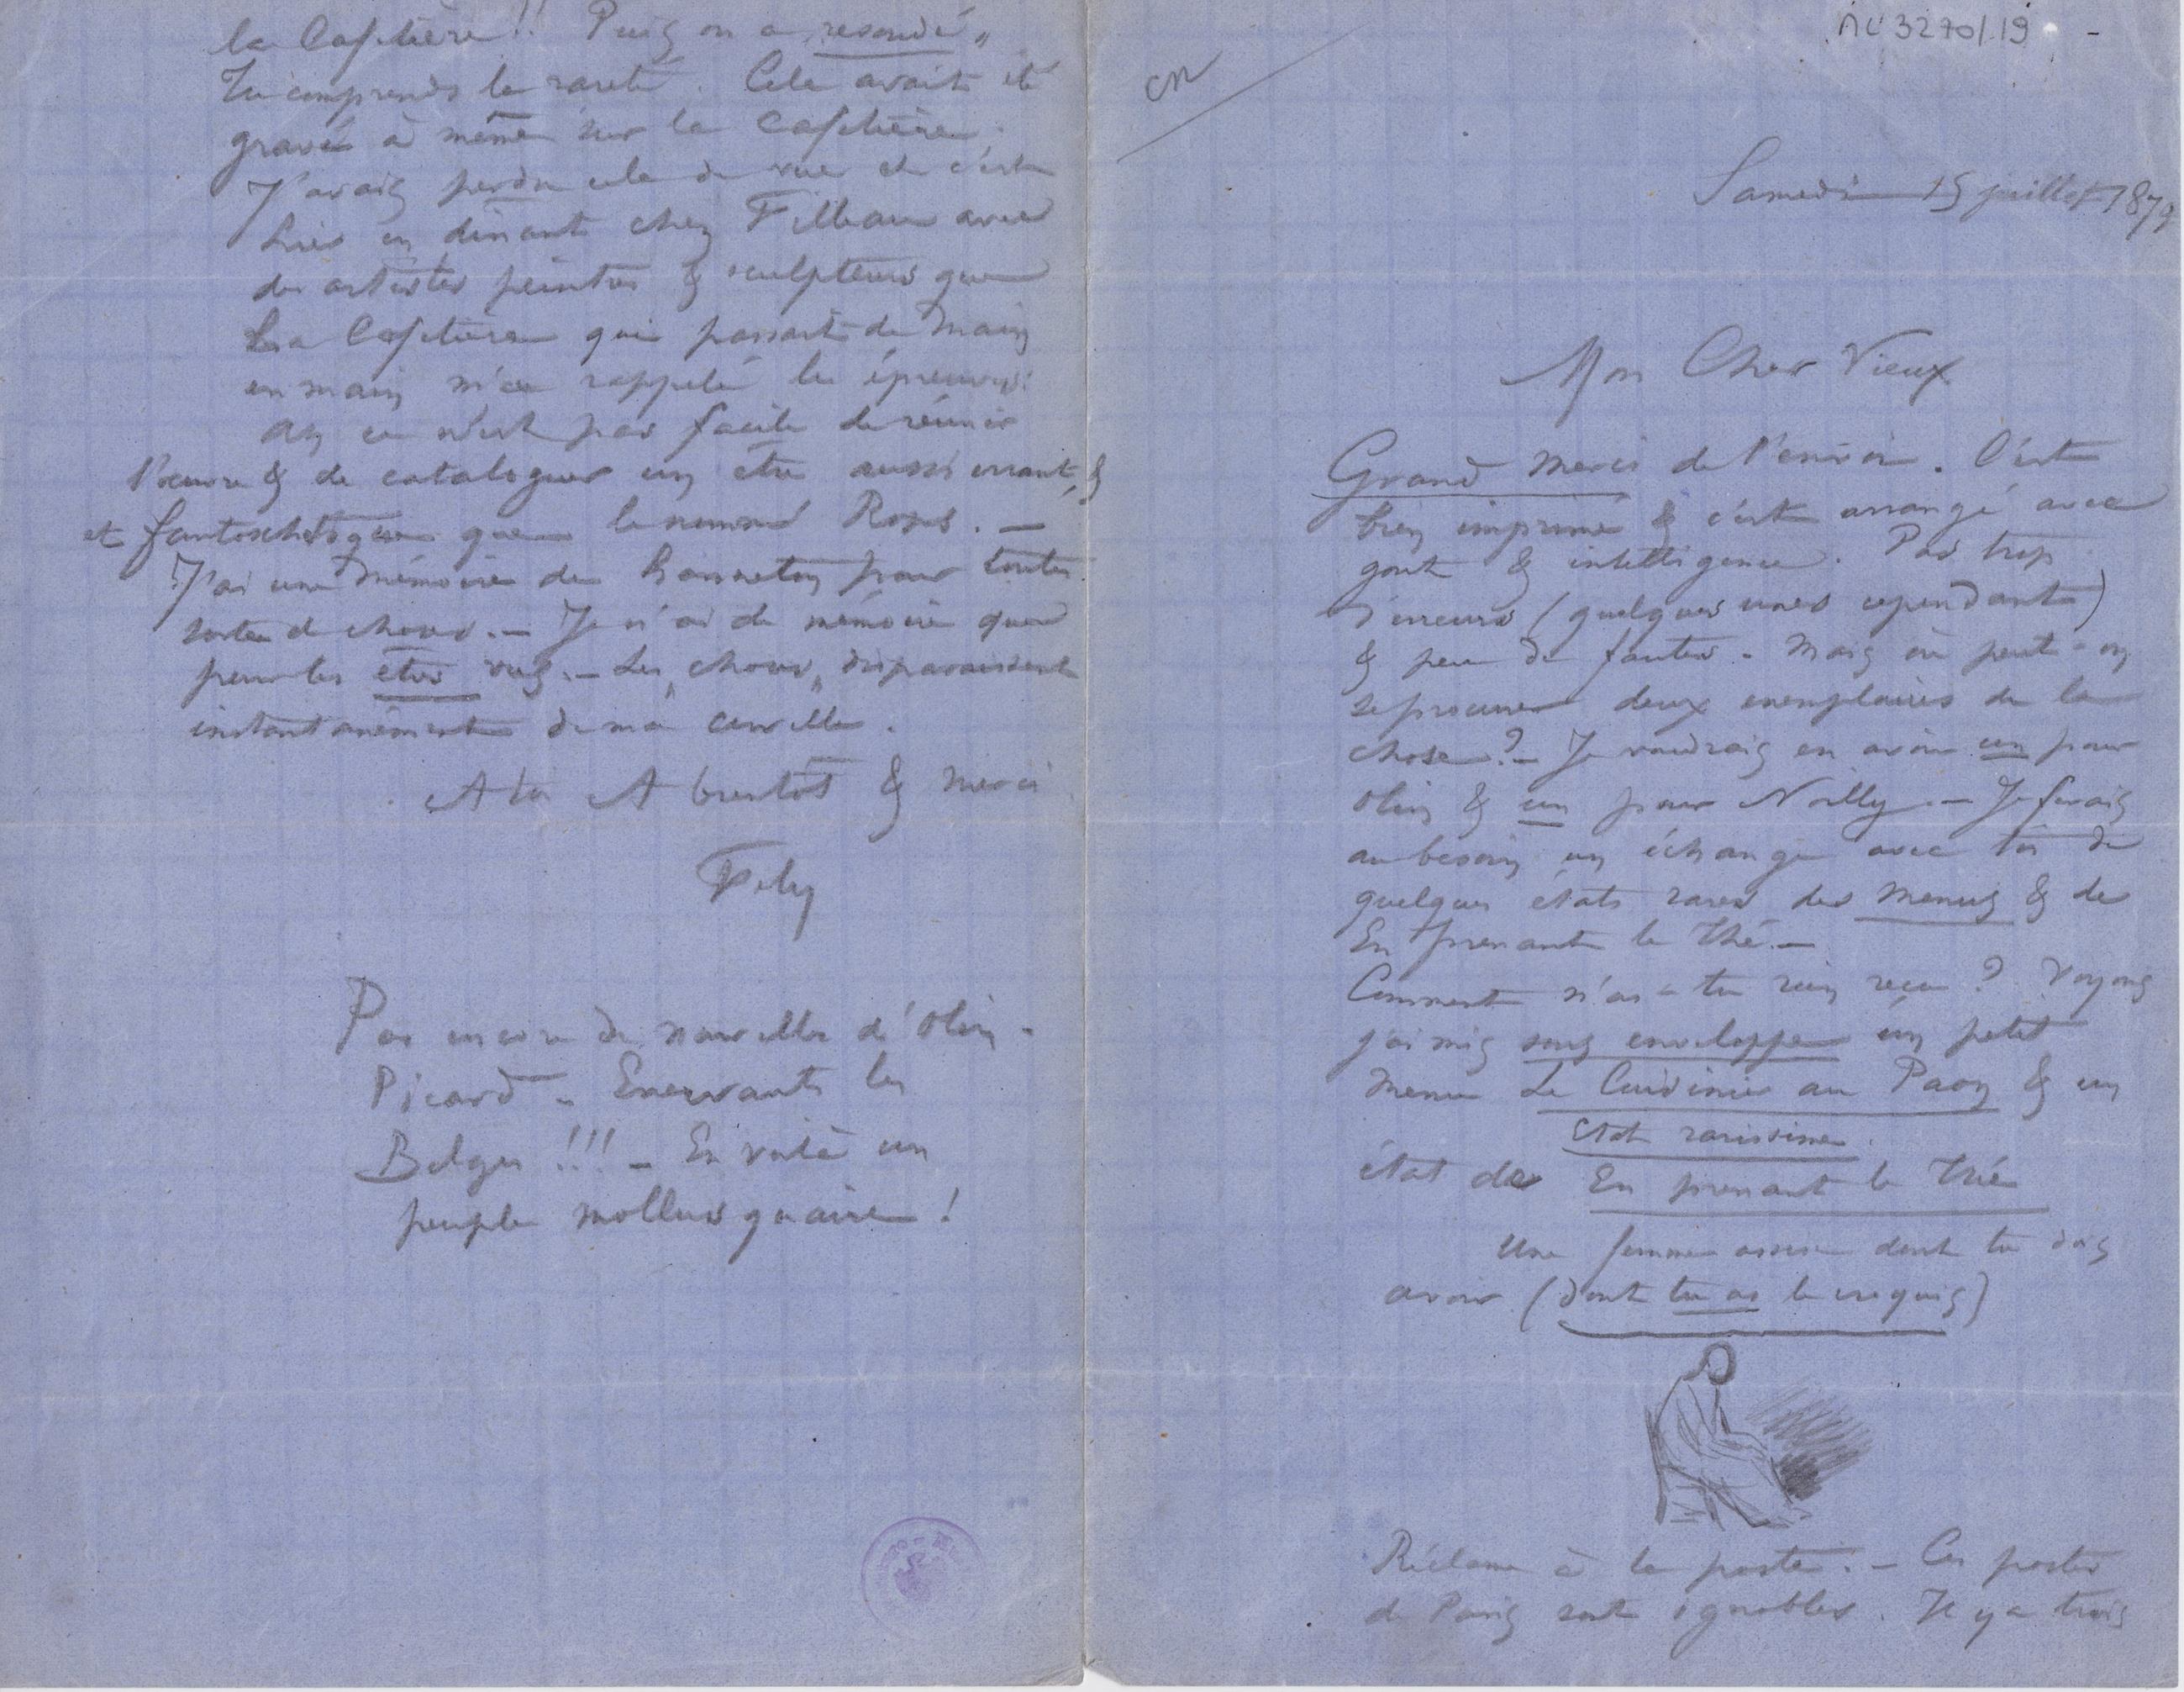 MU 3270/19
Samedi 15 juillet 1879
Mon Cher Vieux
Grand merci de l'envoi. C'est
bien imprimé & c'est arrangé avec
gout & intelligence. Pas trop
d'erreurs (quelques unes cependant)
& peu de fautes. Mais où peut-on
se procurer deux exemplaires de la
chose ? – Je voudrais en avoir un pour
Olin & un pour Noilly. – Je ferais
au besoin un échange avec toi de
quelques états rares des Menus & de
En prenant le Thé –
Comment n'as-tu rien reçu ? Voyons
j'ai mis sous enveloppe un petit
menu Le Cuisinier au Paon & un
état rarissime
état de En prenant le Thé
Une femme assise dont tu dois
avoir (dont tu as le croquis)
Réclame à la poste. – Ces postes
de Paris sont ignobles. Il y a trois
la Cafetière !! Puis on a „resoudé„
Tu comprends la rareté. Cela avait été
gravé à même sur la Cafetière.
J'avais perdu cela de vue et c'est
hier en dinant chez Filleau avec
des artistes peintres & sculpteurs que
La Cafetière qui passait de main
en main m'a rappelé les épreuves.
Ah ce n'est pas facile de réunir
l'œuvre & de cataloguer un être aussi errant, &
et que le nommé Rops. –
J'ai une mémoire de hanneton pour toutes
sortes de choses. – Je n'ai de mémoire que
pour les êtres vus. – Les „choses„ disparaissent
instantanément de ma cervelle.
A toi A bientôt & merci
Fély
Pas encore de nouvelles d'Olin –
Picard – Enervants les
Belges !!! – En voilà un
peuple mollusquaire !